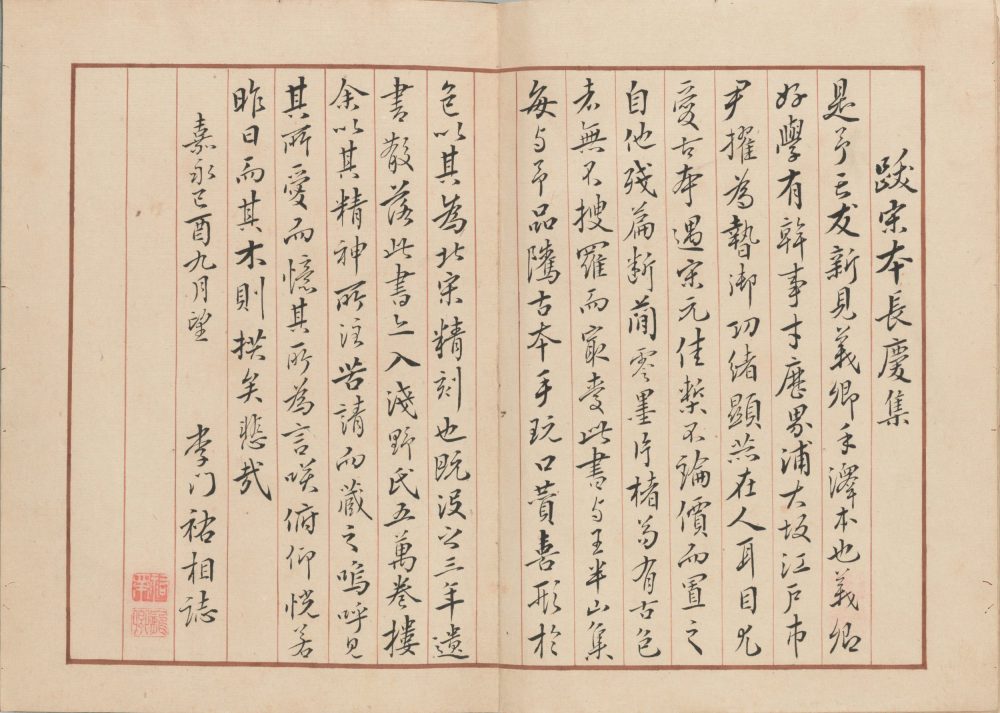 跋宋本長慶集
是予亡友新見義卿手澤本也義卿
好學有幹事才歷界浦大坂江戶市
尹擢為贄御功緒顯然在人耳目尤
愛古本遇宋元佳槧不論價而置之
自他殘篇斷簡零墨片楮苟有古色
者無不搜羅而最愛此書与王半山集
每与予品隲古本手玩口賛喜形於
色以其為北宋精刻也既沒之三年遺
書散落此書亦入淺野氏五萬卷樓
余以其精神所注苦請而藏之嗚呼見
其所愛而憶其所為言咲俯仰恍若
昨日而其木則拱矣悲哉
嘉永己酉九月望 李门祐相誌